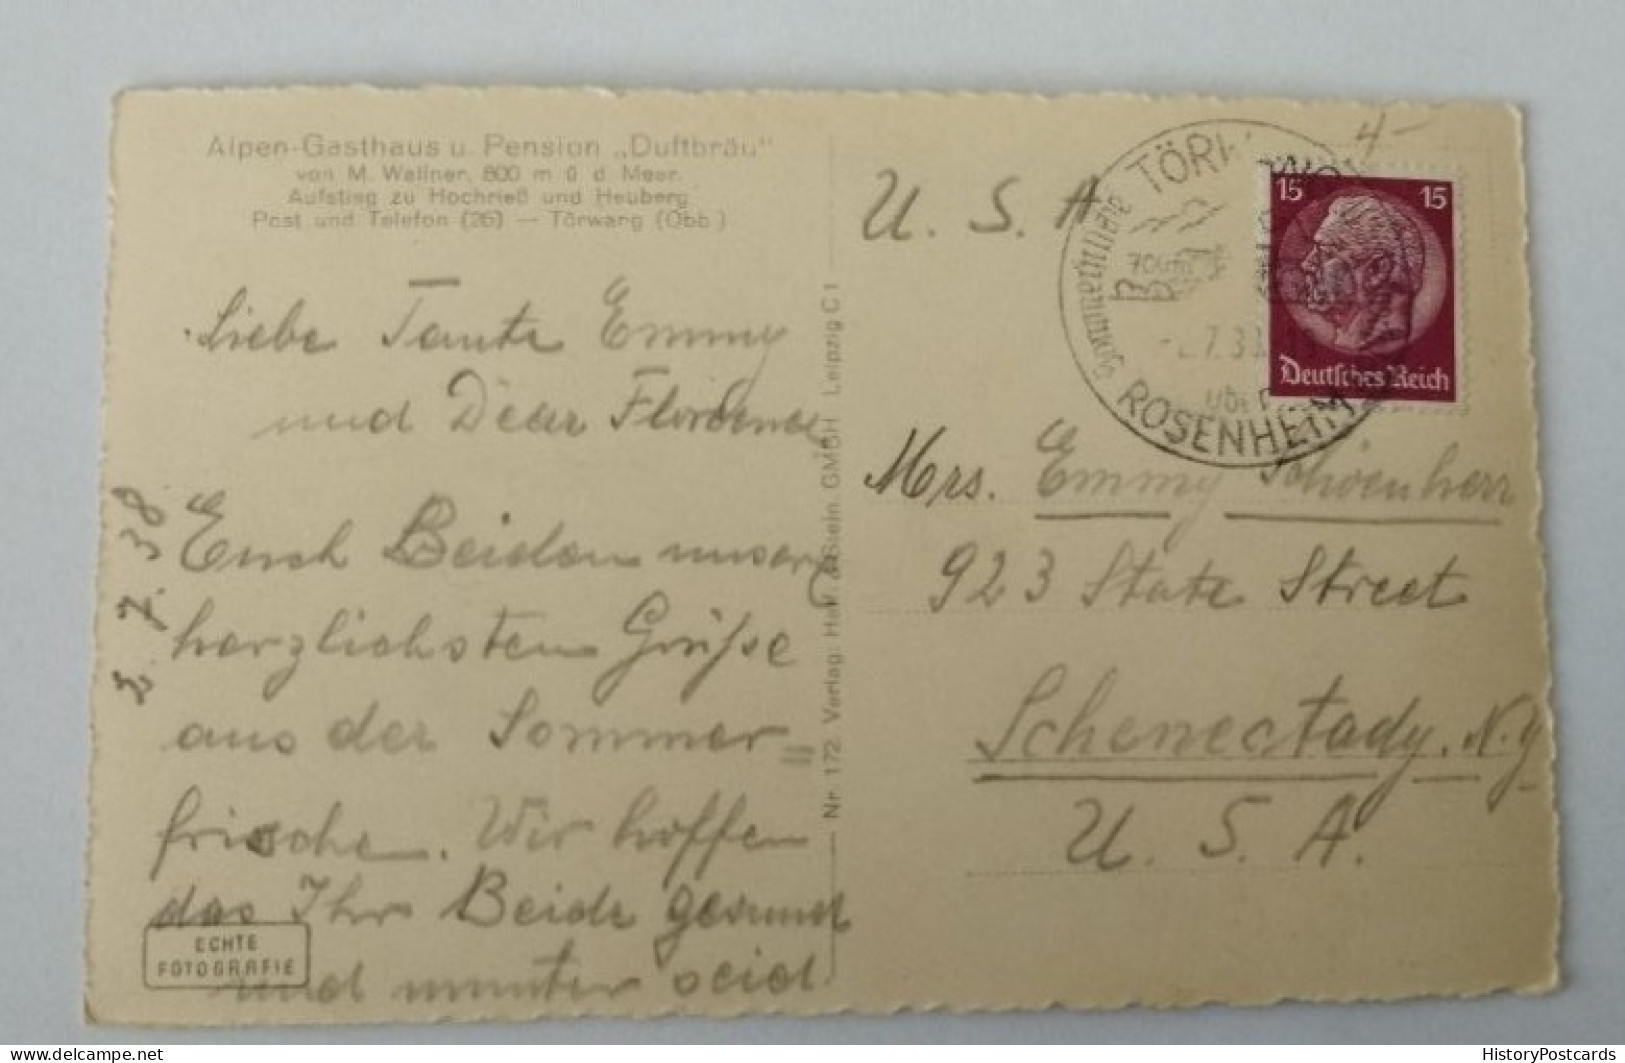 Alpen-Gasthaus u. Pension „Duftbräu"
von M. Wallner, 800 m ü d Meer.
Aufstieg zu Hochrieß und Heuberg
Post und Telefon (26) — Törwang (Obb.)
Liebe Tante Emmy
und Dear Florence
Euch Beiden unsere
herzlichsten Grüße
aus der Sommer=
frische. Wir hoffen
das Ihr Beide gesund
und munter seid
2. 7. 38
ECHTE
FOTOGRAFIE
Nr 172. Verlag: Stein GMBH Leipzig C 1
4-
U. S. A
Sommerfrische TÖRWANG
700m
7.38
über
ROSENHEIM
15 15
Deutsches Reich
Mrs. Emmy Schoenherr
923 State Street
Schenectady. N.Y
U. S. A.
delcampe.net
HistoryPostcards